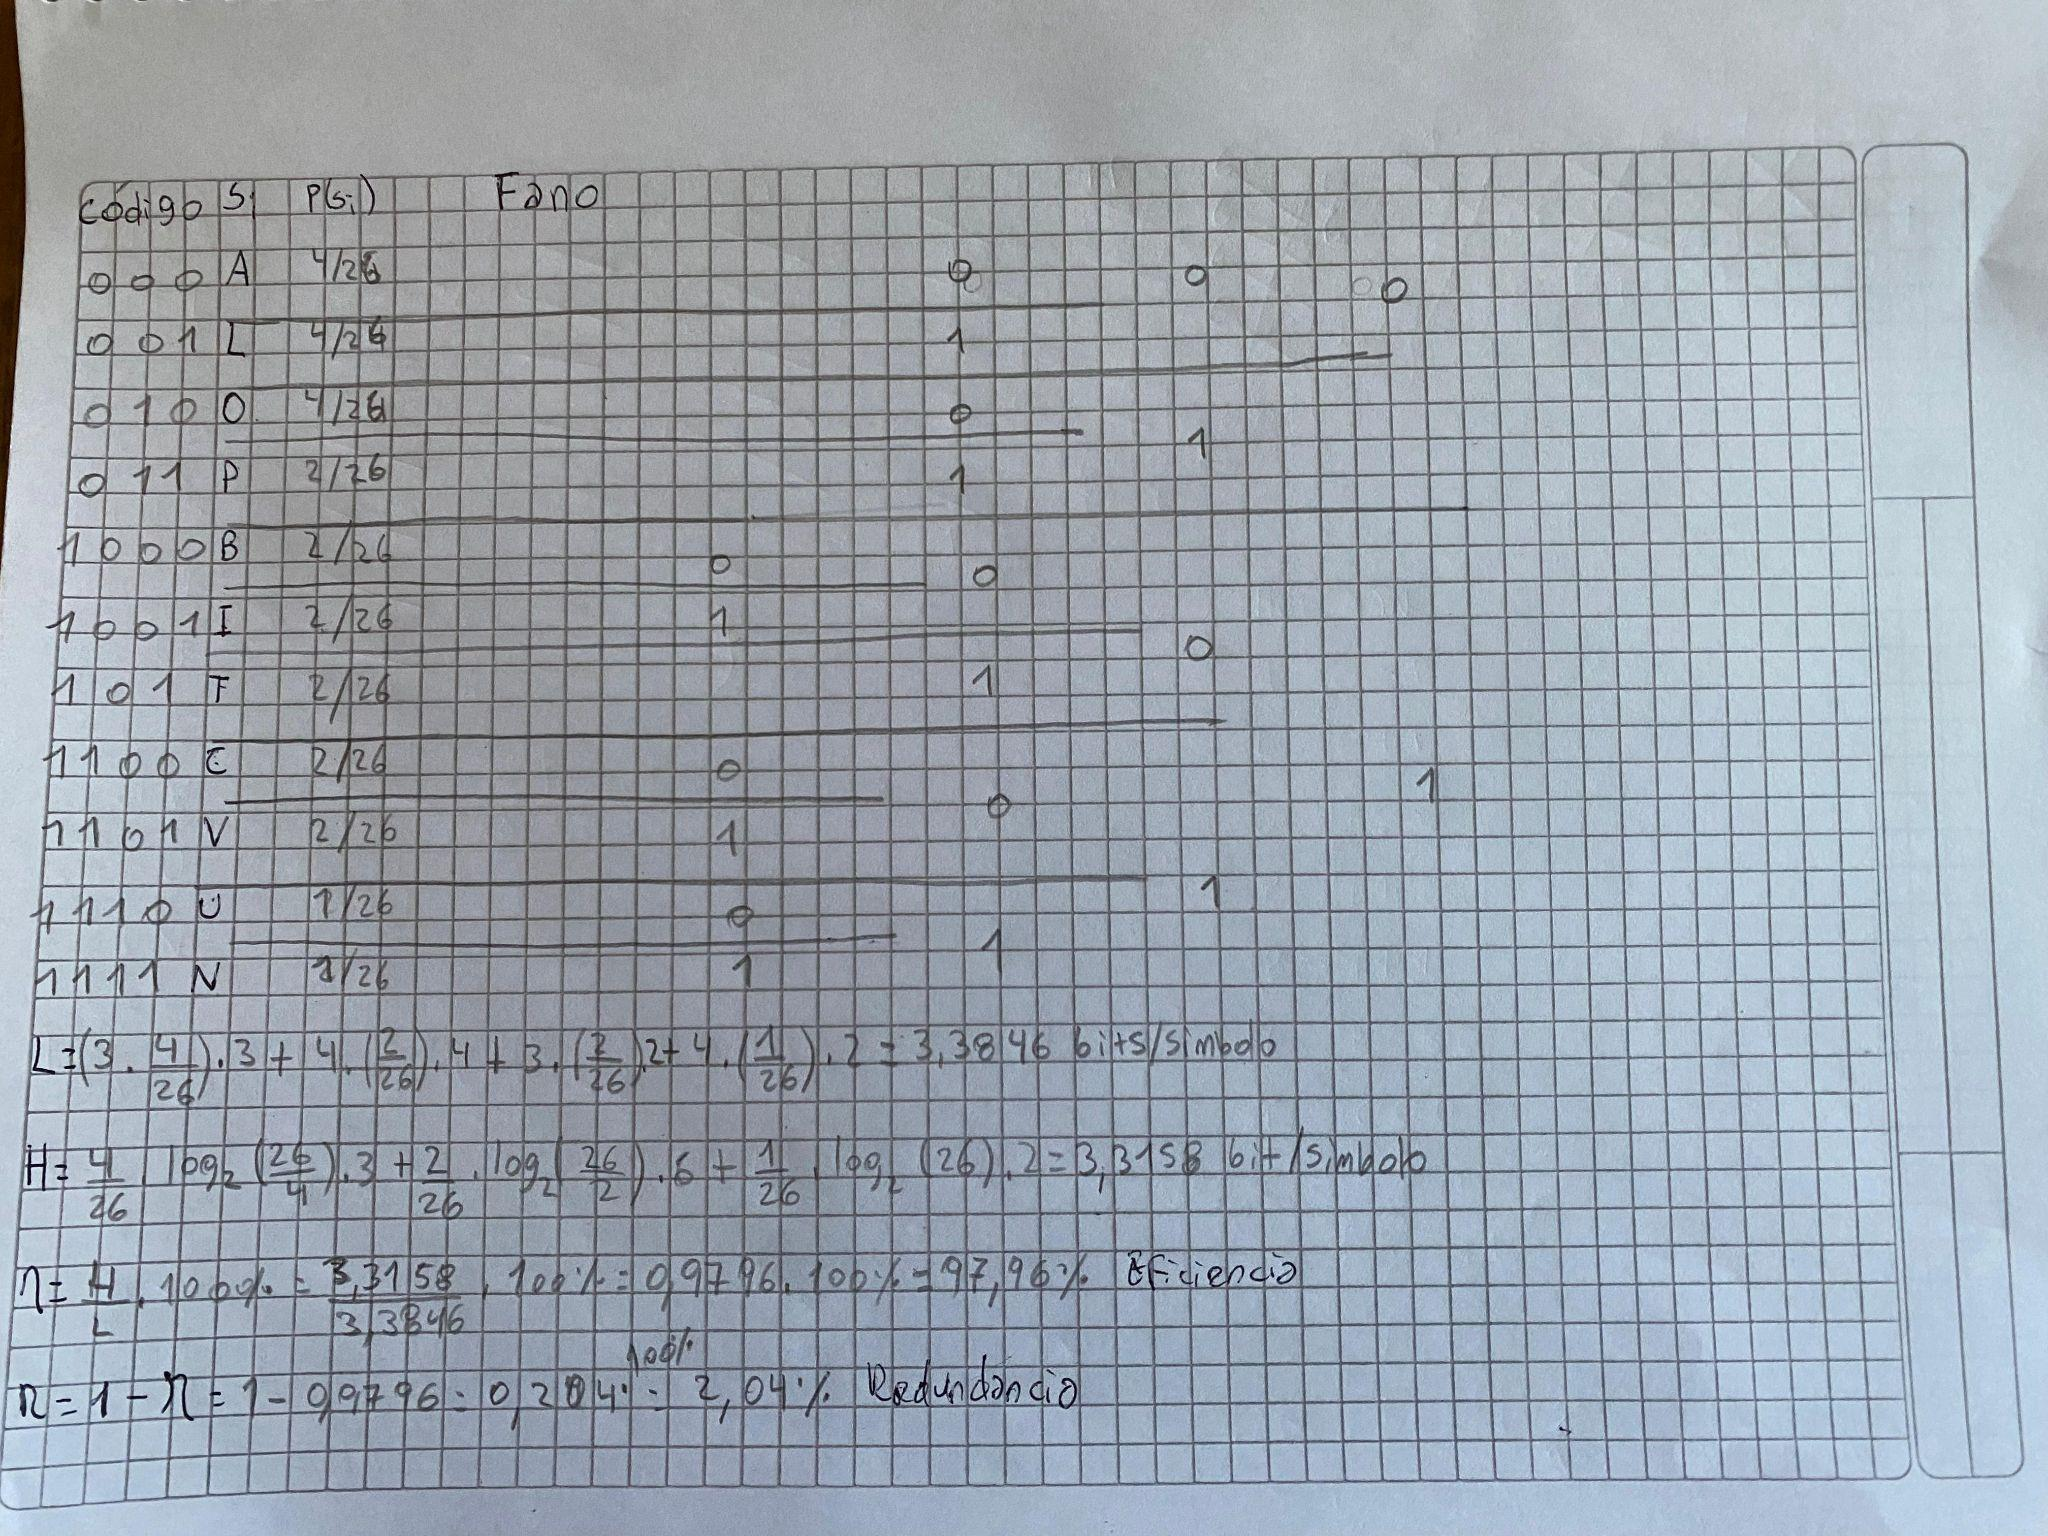 Código Si P(Si) Fano
0 0 0 A 4/26 0 0 0
0 0 1 L 4/26 1
0 1 0 O 4/26 0 1
0 1 1 P 2/26 1
1 0 0 0 B 2/26 0 0
1 0 0 1 I 2/26 1 0
1 0 1 T 2/26 1
1 1 0 0 E 2/26 0 1
1 1 0 1 V 2/26 1 0
1 1 1 0 U 1/26 0 1
1 1 1 1 N 1/26 1 1
L = (3 . 4/26) . 3 + 4 . (2/26) . 4 + 3 . (2/26) . 2 + 4 . (1/26) . 2 = 3,3846 bits/símbolo
H = 4/26 . log₂ (26/4) . 3 + 2/26 . log₂ (26/2) . 6 + 1/26 . log₂ (26) . 2 = 3,3158 bit/símbolo
η = H/L . 100% = 3,3158/3,3846 . 100% = 0,9796 . 100% = 97,96% Eficiencia
r = 1 - η = 1 - 0,9796 = 0,204 . 100% = 2,04% Redundância